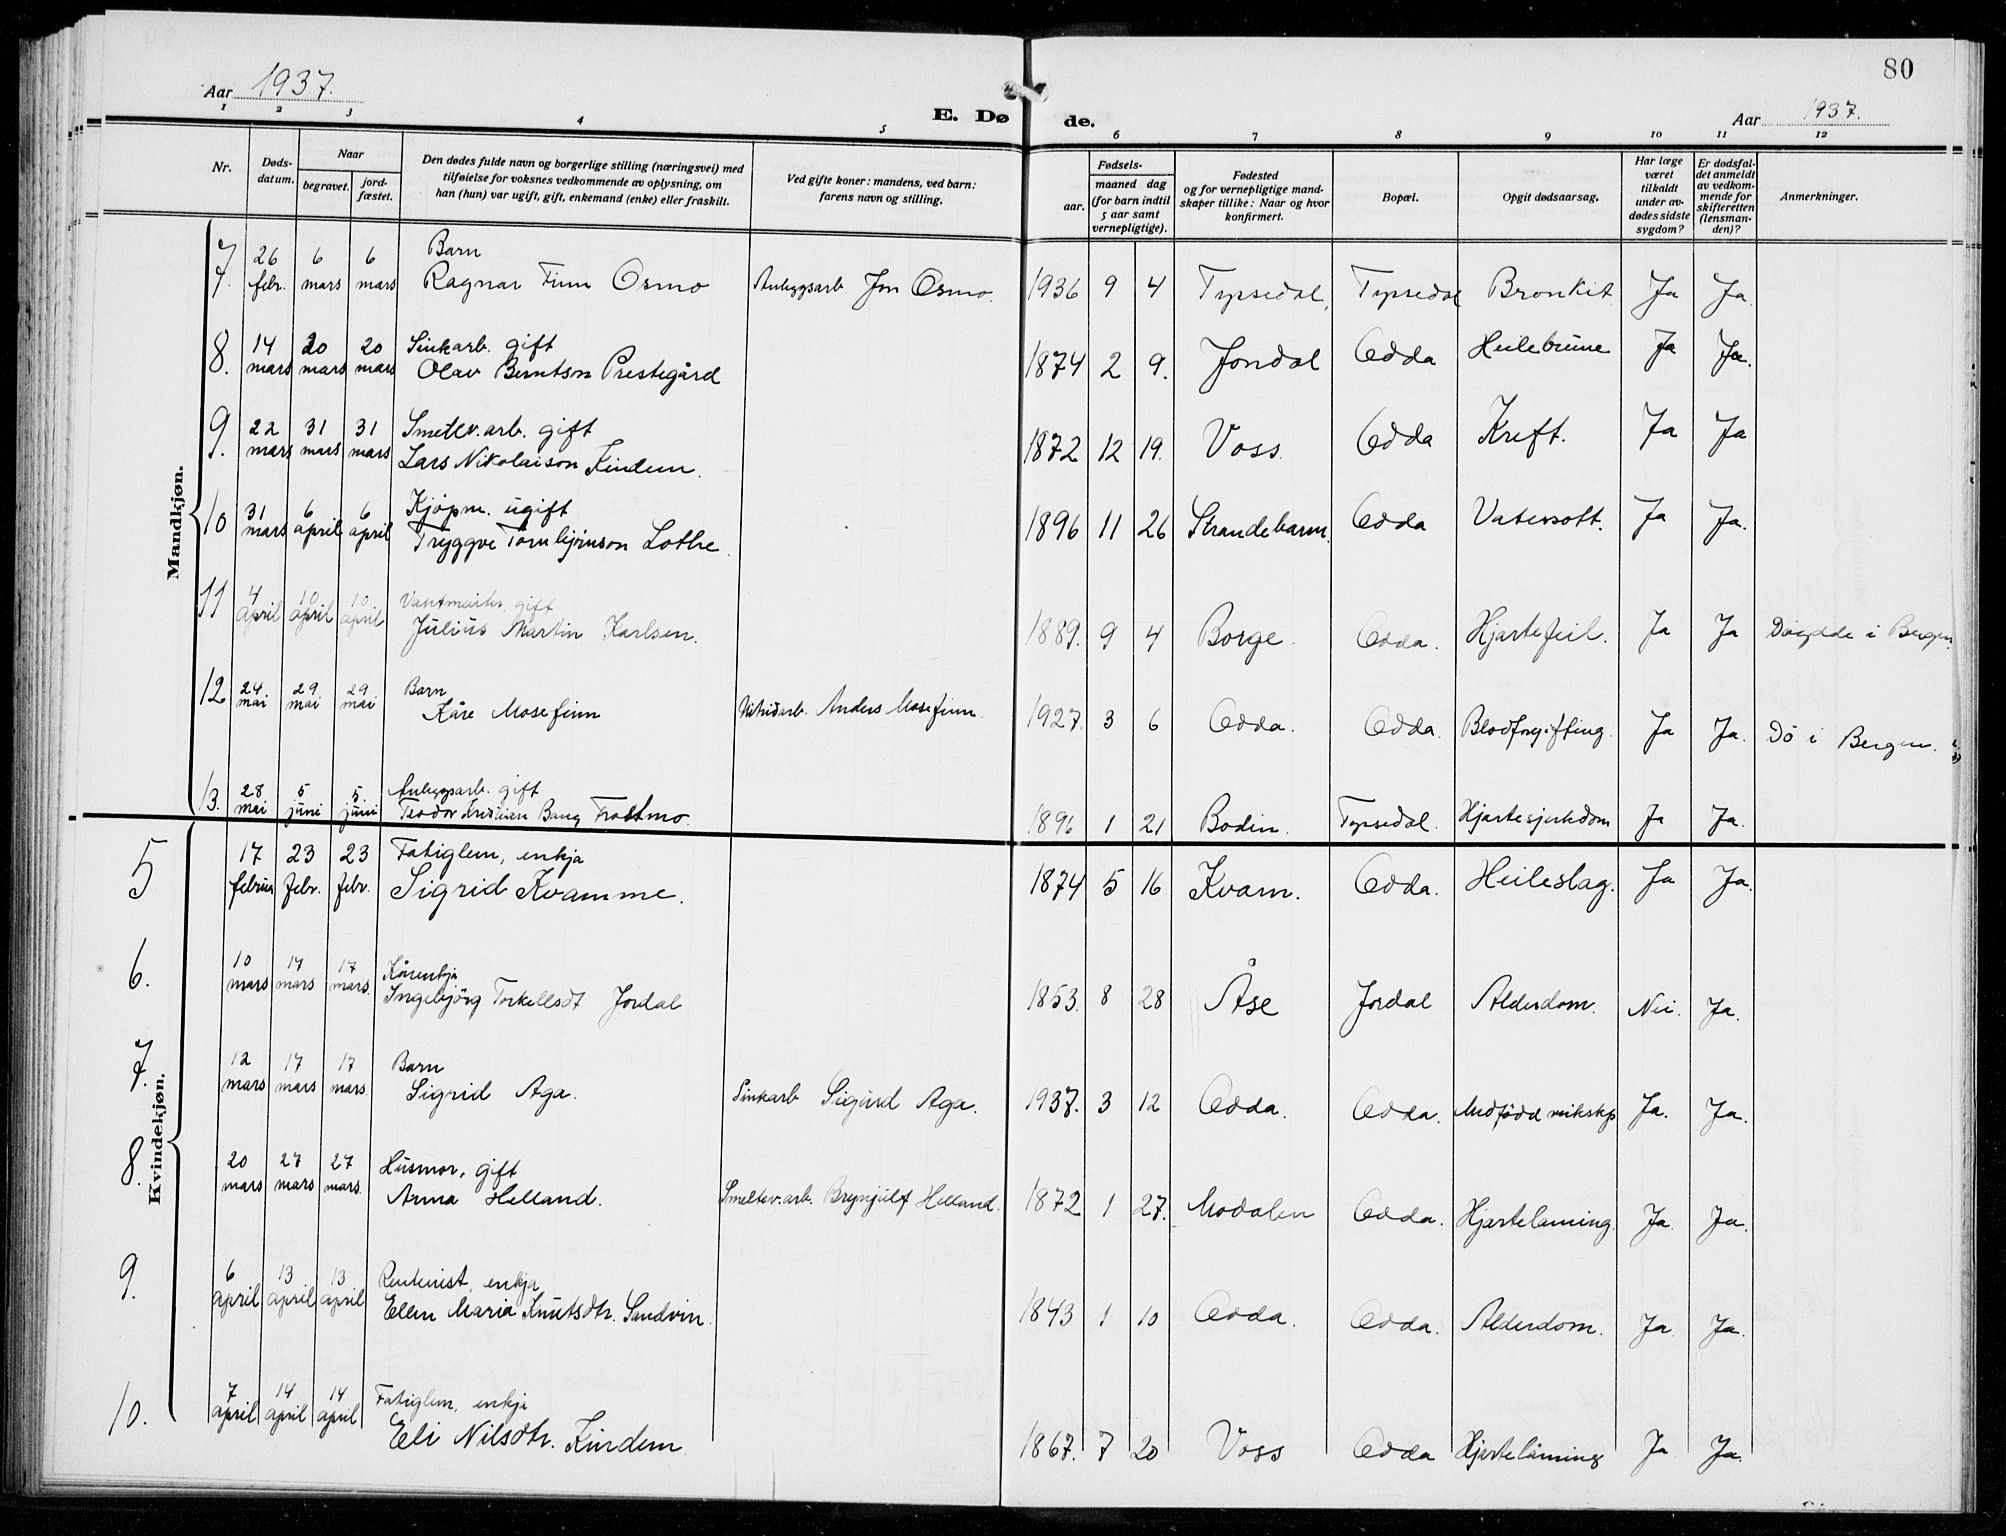 80
Aar 1937.
E. Døde.
Aar 1937.
1 2 3 4 5 6 7 8 9 10 11 12
Nr.
Døds-datum.
Naar
begravet.
jord-fæstet.
Den dødes fulde navn og borgerlige stilling (næringsvei) med
tilføielse for voksnes vedkommende av oplysning, om
han (hun) var ugift, gift, enkemand (enke) eller fraskilt.
Ved gifte koner: mandens, ved barn:
farens navn og stilling.
Fødsels-
aar.
maaned dag
(for barn indtil
5 aar samt
vernepligtige).
Fødested
og for vernepligtige mand-
skaper tillike: Naar og hvor
konfirmert.
Bopæl.
Opgit dødsaarsag.
Har læge
været
tilkaldt
under av-
dødes sidste
sygdom?
Er dødsfal-
det anmeldt
av vedkom-
mende for
skifteretten
(lensman-
den)?
Anmerkninger.
Mandkjøn.
26 6 6 Barn
7. febr. mars mars Ragnar Finn Osmo Anleggsarb. Jon Osmo. 1936 9 4 Tyssedal, Tyssedal Bronkit Ja Ja.
14 20 20 Sinkarb. gift
8. mars mars mars Olav Berntson Prestegård 1874 2 9. Jondal Odda Ja Ja.
22 31 31 Smeltev. arb. gift
9. mars mars mars Lars Nikolaison Kindem. 1872 12 19. Voss. Odda Kreft. Ja Ja
31 6 6 Kjøpm. ugift
10 mars april april Tryggve Tornbjørnson Lothe. 1896 11 26 Strandebarm. Odda Vatersott. Ja Ja.
4 10 10 Vaktmeister, gift
11 april april april Julius Martin Karlsen. 1889. 9 4 Borge. Odda. Hjartefeil. Ja Ja Døydde i Bergen.
24 29 29 Barn
12 mai mai mai Kåre Mosefinn Nitridarb. Anders Mosefinn. 1927. 3 6 Odda. Odda. Blodforgifting. Ja Ja. Dø i Bergen.
28 5 5. Anleggsarb. gift
13. mai juni juni Teodor Kristian Bang Frostmo. 1896 1 21 Bodin. Tyssedal. Hjartesjukdom Ja Ja.
Kvindekjøn.
17 23 23 Fatiglem, enkja
5 februar febr. febr. Sigrid Kvamme. 1874 5 16 Kvam. Odda. Heileslag. Ja Ja.
10 17 17 Kårenkja
6. mars mars mars. Ingebjörg Torkellsdt Jordal 1853. 8 28 Åse Jordal Alderdom. Nei. Ja.
12 17 17 Barn
7. mars mars mars. Sigrid Aga. Sinkarb Sigurd Aga. 1937. 3 12 Odda. Odda. Medfødd veikskp Ja. Ja.
20 27 27 Husmor, gift
8. mars mars mars. Anna Helland. Smeltev. arb. Brynjulf Helland. 1872 1 27. Modalen Odda. Hjartelaming. Ja. Ja.
6 13 13 Rentenist, enkja
9. april april april Ellen Maria Knutsdtr. Sandvin. 1843 1 10 Odda. Odda. Alderdom. Ja. Ja.
7 14 14 Fatiglem, enkja
10. april april april Eli Nilsdtr. Kindem. 1867. 7 20 Voss Odda Hjartelaming Ja Ja.